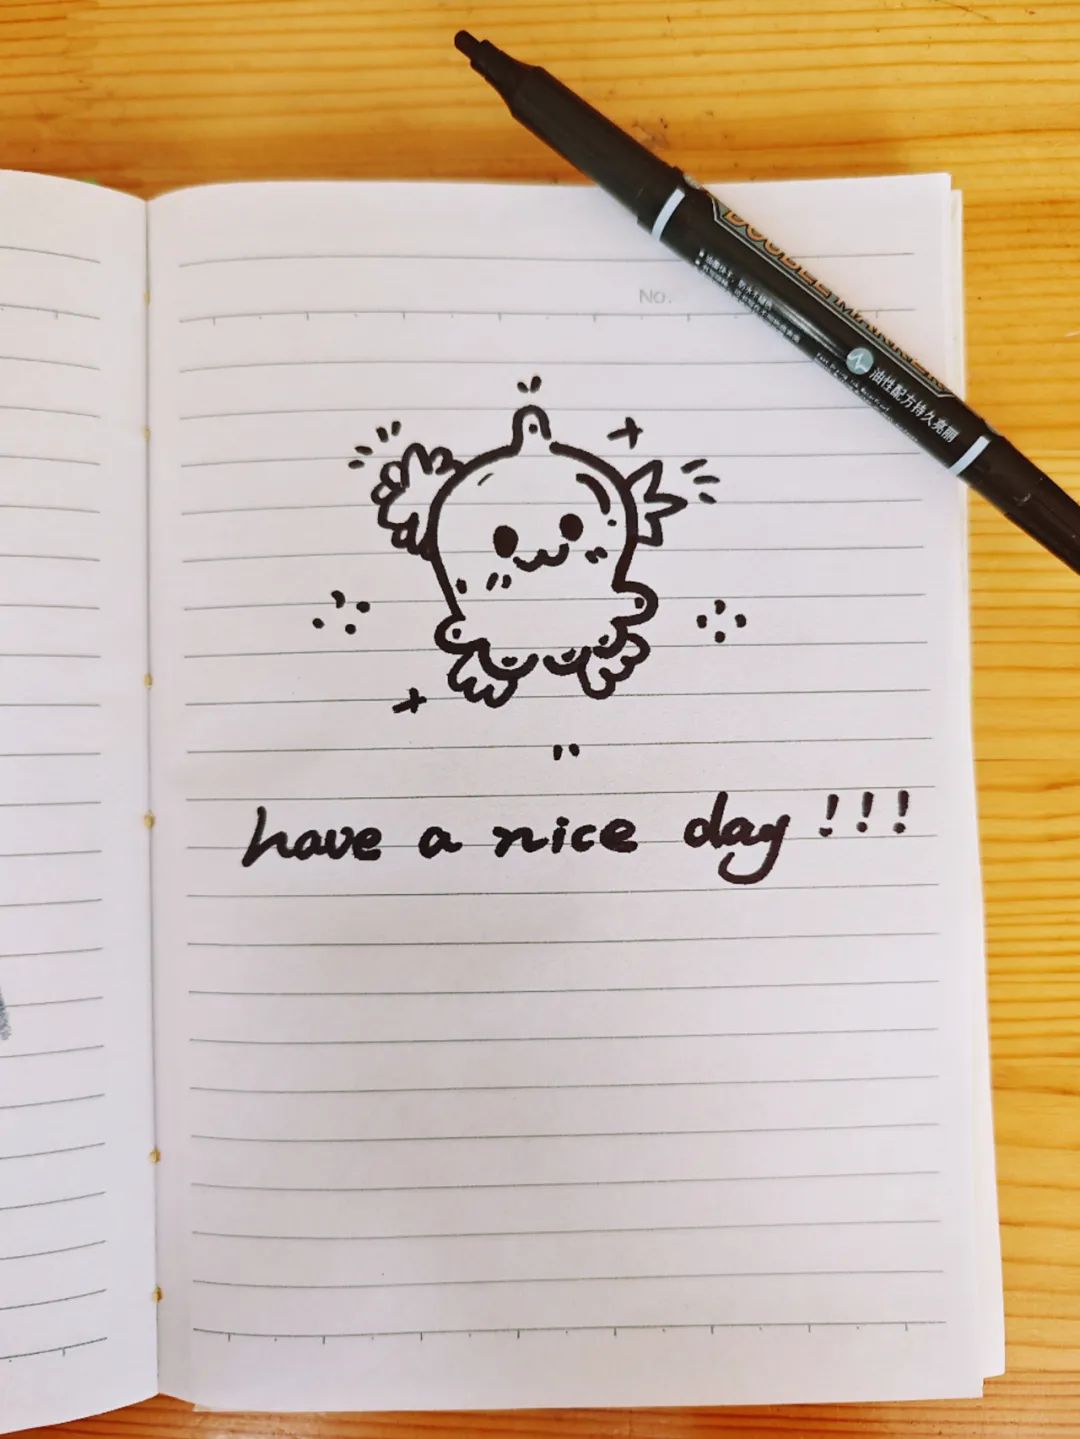 No.
DOUBLE MARKER
油性配方持久亮丽
have a nice day !!!